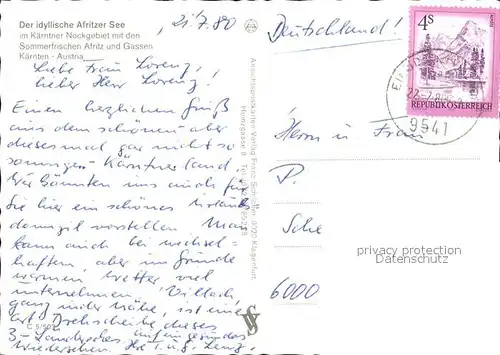 Der idyllische Afritzer See
im Kärntner Nockgebiet mit den
Sommerfrischen Afritz und Gassen
Kärnten - Austria
21.7.80
Liebe Frau Lorenz,
lieber Herr Lorenz!
Einen herzlichen Gruß
aus dem schönen aber
diesmal gar nicht so
sonnigen Kärntner Land.
Wir könnten uns auch für
Sie hier ein schönes Urlaubs
domizil vorstellen. Man
kann auch bei wechsel-
haften, aber im Grunde
warmen Wetter viel
unternehmen. Villach,
ganz in der Nähe, ist eine
Art Drehscheibe dieses
3-Länderecks. Auf ein gesundes
Wiedersehen. Ihre
Ansichtskarten-Verlag Franz Schilcher, 9020 Klagenfurt,
Deutschland!
Herrn u Frau
P.
Sche
6000
4S
REPUBLIK ÖSTERREICH
9541
privacy protection
Datenschutz